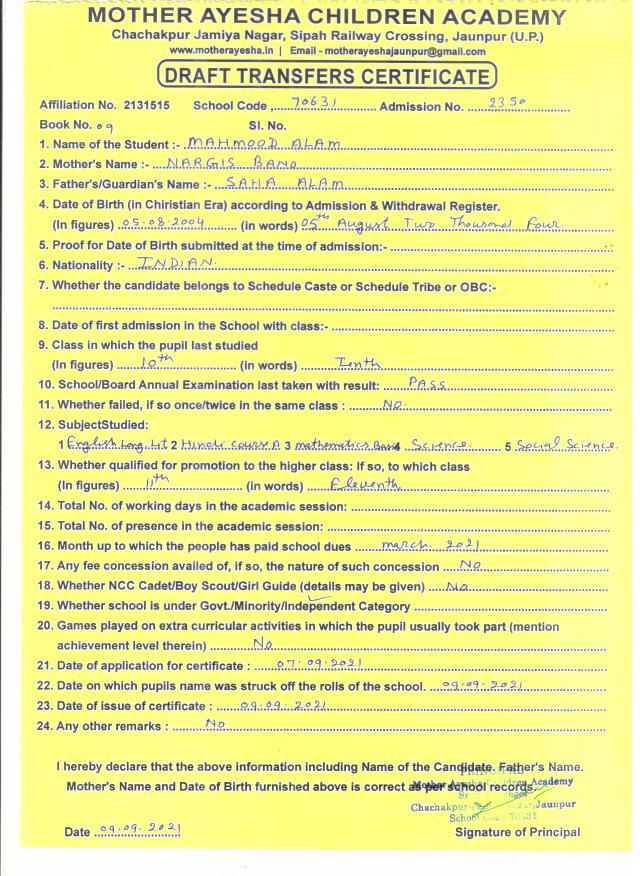 MOTHER AYESHA CHILDREN ACADEMY
Chachakpur Jamiya Nagar, Sipah Railway Crossing, Jaunpur (U.P.)
www.motherayesha.in | Email - motherayeshajaunpur@gmail.com
DRAFT TRANSFERS CERTIFICATE
Affiliation No. 2131515 School Code 70631 Admission No. 2350
Book No. 09 Sl. No.
1. Name of the Student :- MAHMOOD ALAM
2. Mother's Name :- NARGIS BANO
3. Father's/Guardian's Name :- SAHA ALAM
4. Date of Birth (in Chiristian Era) according to Admission & Withdrawal Register.
(In figures) 05-08-2004 (in words) 05th August Two Thousand Four
5. Proof for Date of Birth submitted at the time of admission:-
6. Nationality :- INDIAN
7. Whether the candidate belongs to Schedule Caste or Schedule Tribe or OBC:-
8. Date of first admission in the School with class:-
9. Class in which the pupil last studied
(In figures) 10th (in words) Tenth
10. School/Board Annual Examination last taken with result: PASS
11. Whether failed, if so once/twice in the same class : NO
12. SubjectStudied:
1 English Lang. Lit 2 Hindi Course A 3 mathematics Basic 4 Science 5 Social Science
13. Whether qualified for promotion to the higher class: If so, to which class
(In figures) 11th (in words) Eleventh
14. Total No. of working days in the academic session:
15. Total No. of presence in the academic session:
16. Month up to which the people has paid school dues march. 2021
17. Any fee concession availed of, if so, the nature of such concession No
18. Whether NCC Cadet/Boy Scout/Girl Guide (details may be given) No
19. Whether school is under Govt./Minority/Independent Category
20. Games played on extra curricular activities in which the pupil usually took part (mention
achievement level therein) No
21. Date of application for certificate : 07.09.2021
22. Date on which pupils name was struck off the rolls of the school. 09.09.2021
23. Date of issue of certificate : 09.09.2021
24. Any other remarks : No
I hereby declare that the above information including Name of the Candidate. Father's Name.
PRINCIPAL
Mother's Name and Date of Birth furnished above is correct as per school records.
Mother Ayesha Children Academy
Chachakpur Jaunpur
School Code-70631
Date 09.09.2021 Signature of Principal